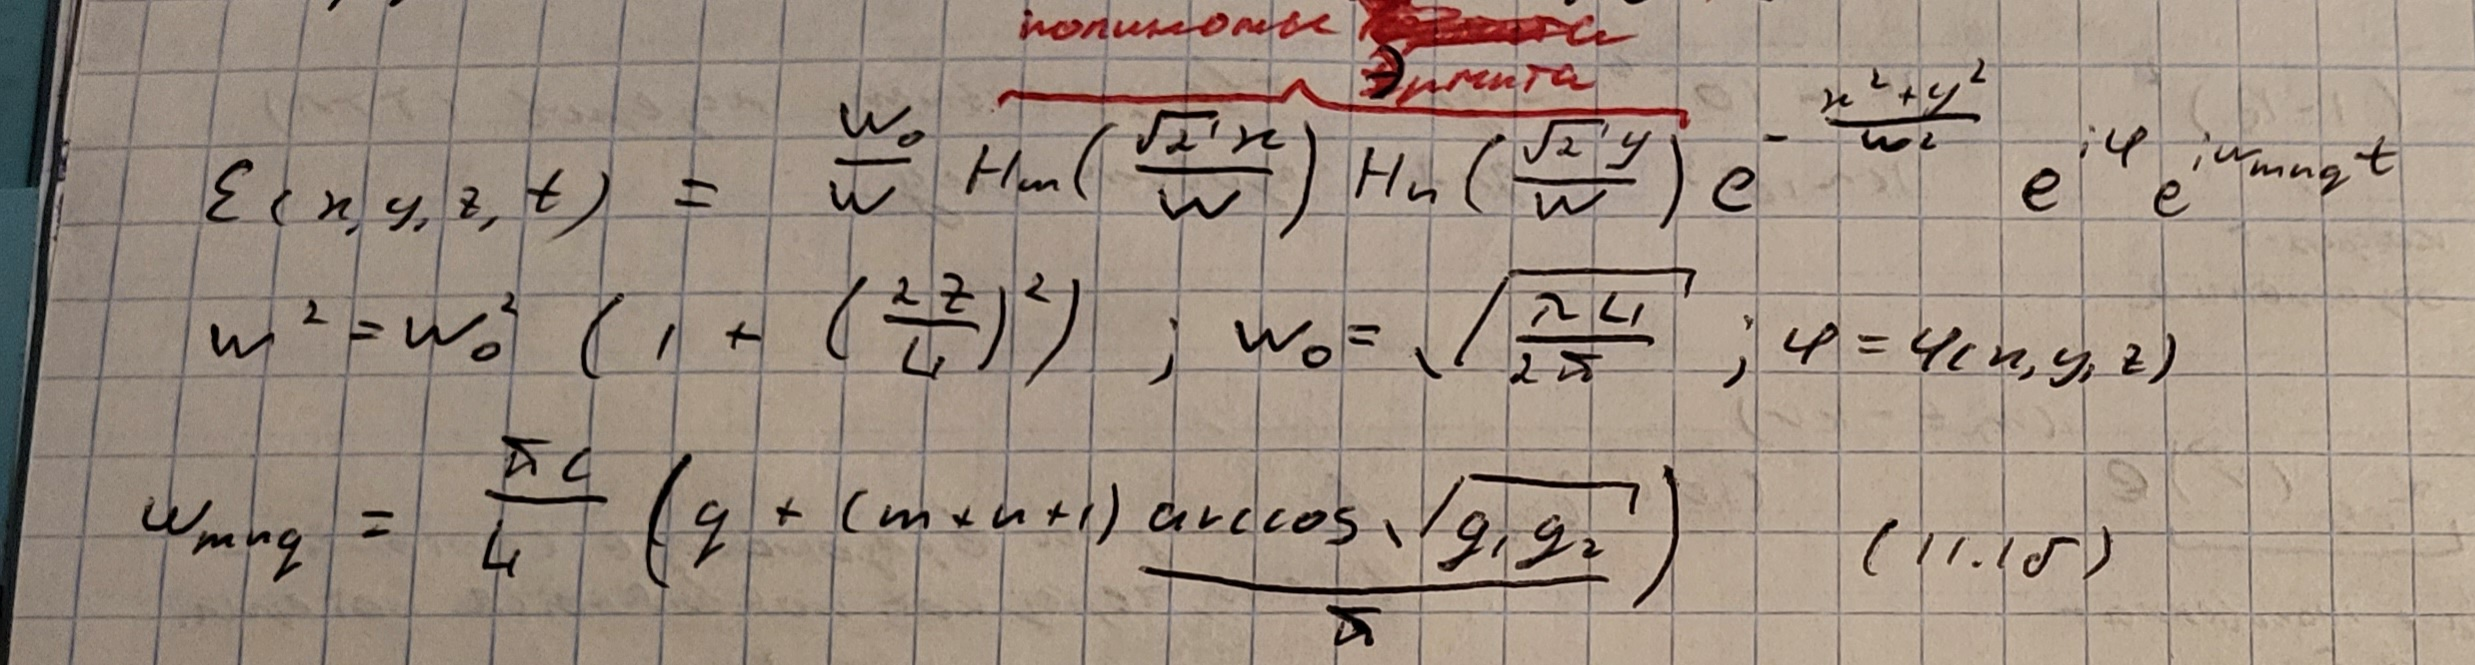 полиномы
Эрмита
ℰ(x, y, z, t) = w₀/w Hₘ(√2 x / w) Hₙ(√2 y / w) e^(-(x²+y²)/w²) e^(iφ) e^(iω_mnq t)
w² = w₀² (1 + (2z/L)²) ; w₀ = √(λL/2π) ; φ = φ(x, y, z)
ω_mnq = πc/L (q + (m+n+1) arccos√(g₁g₂)/π) (11.15)